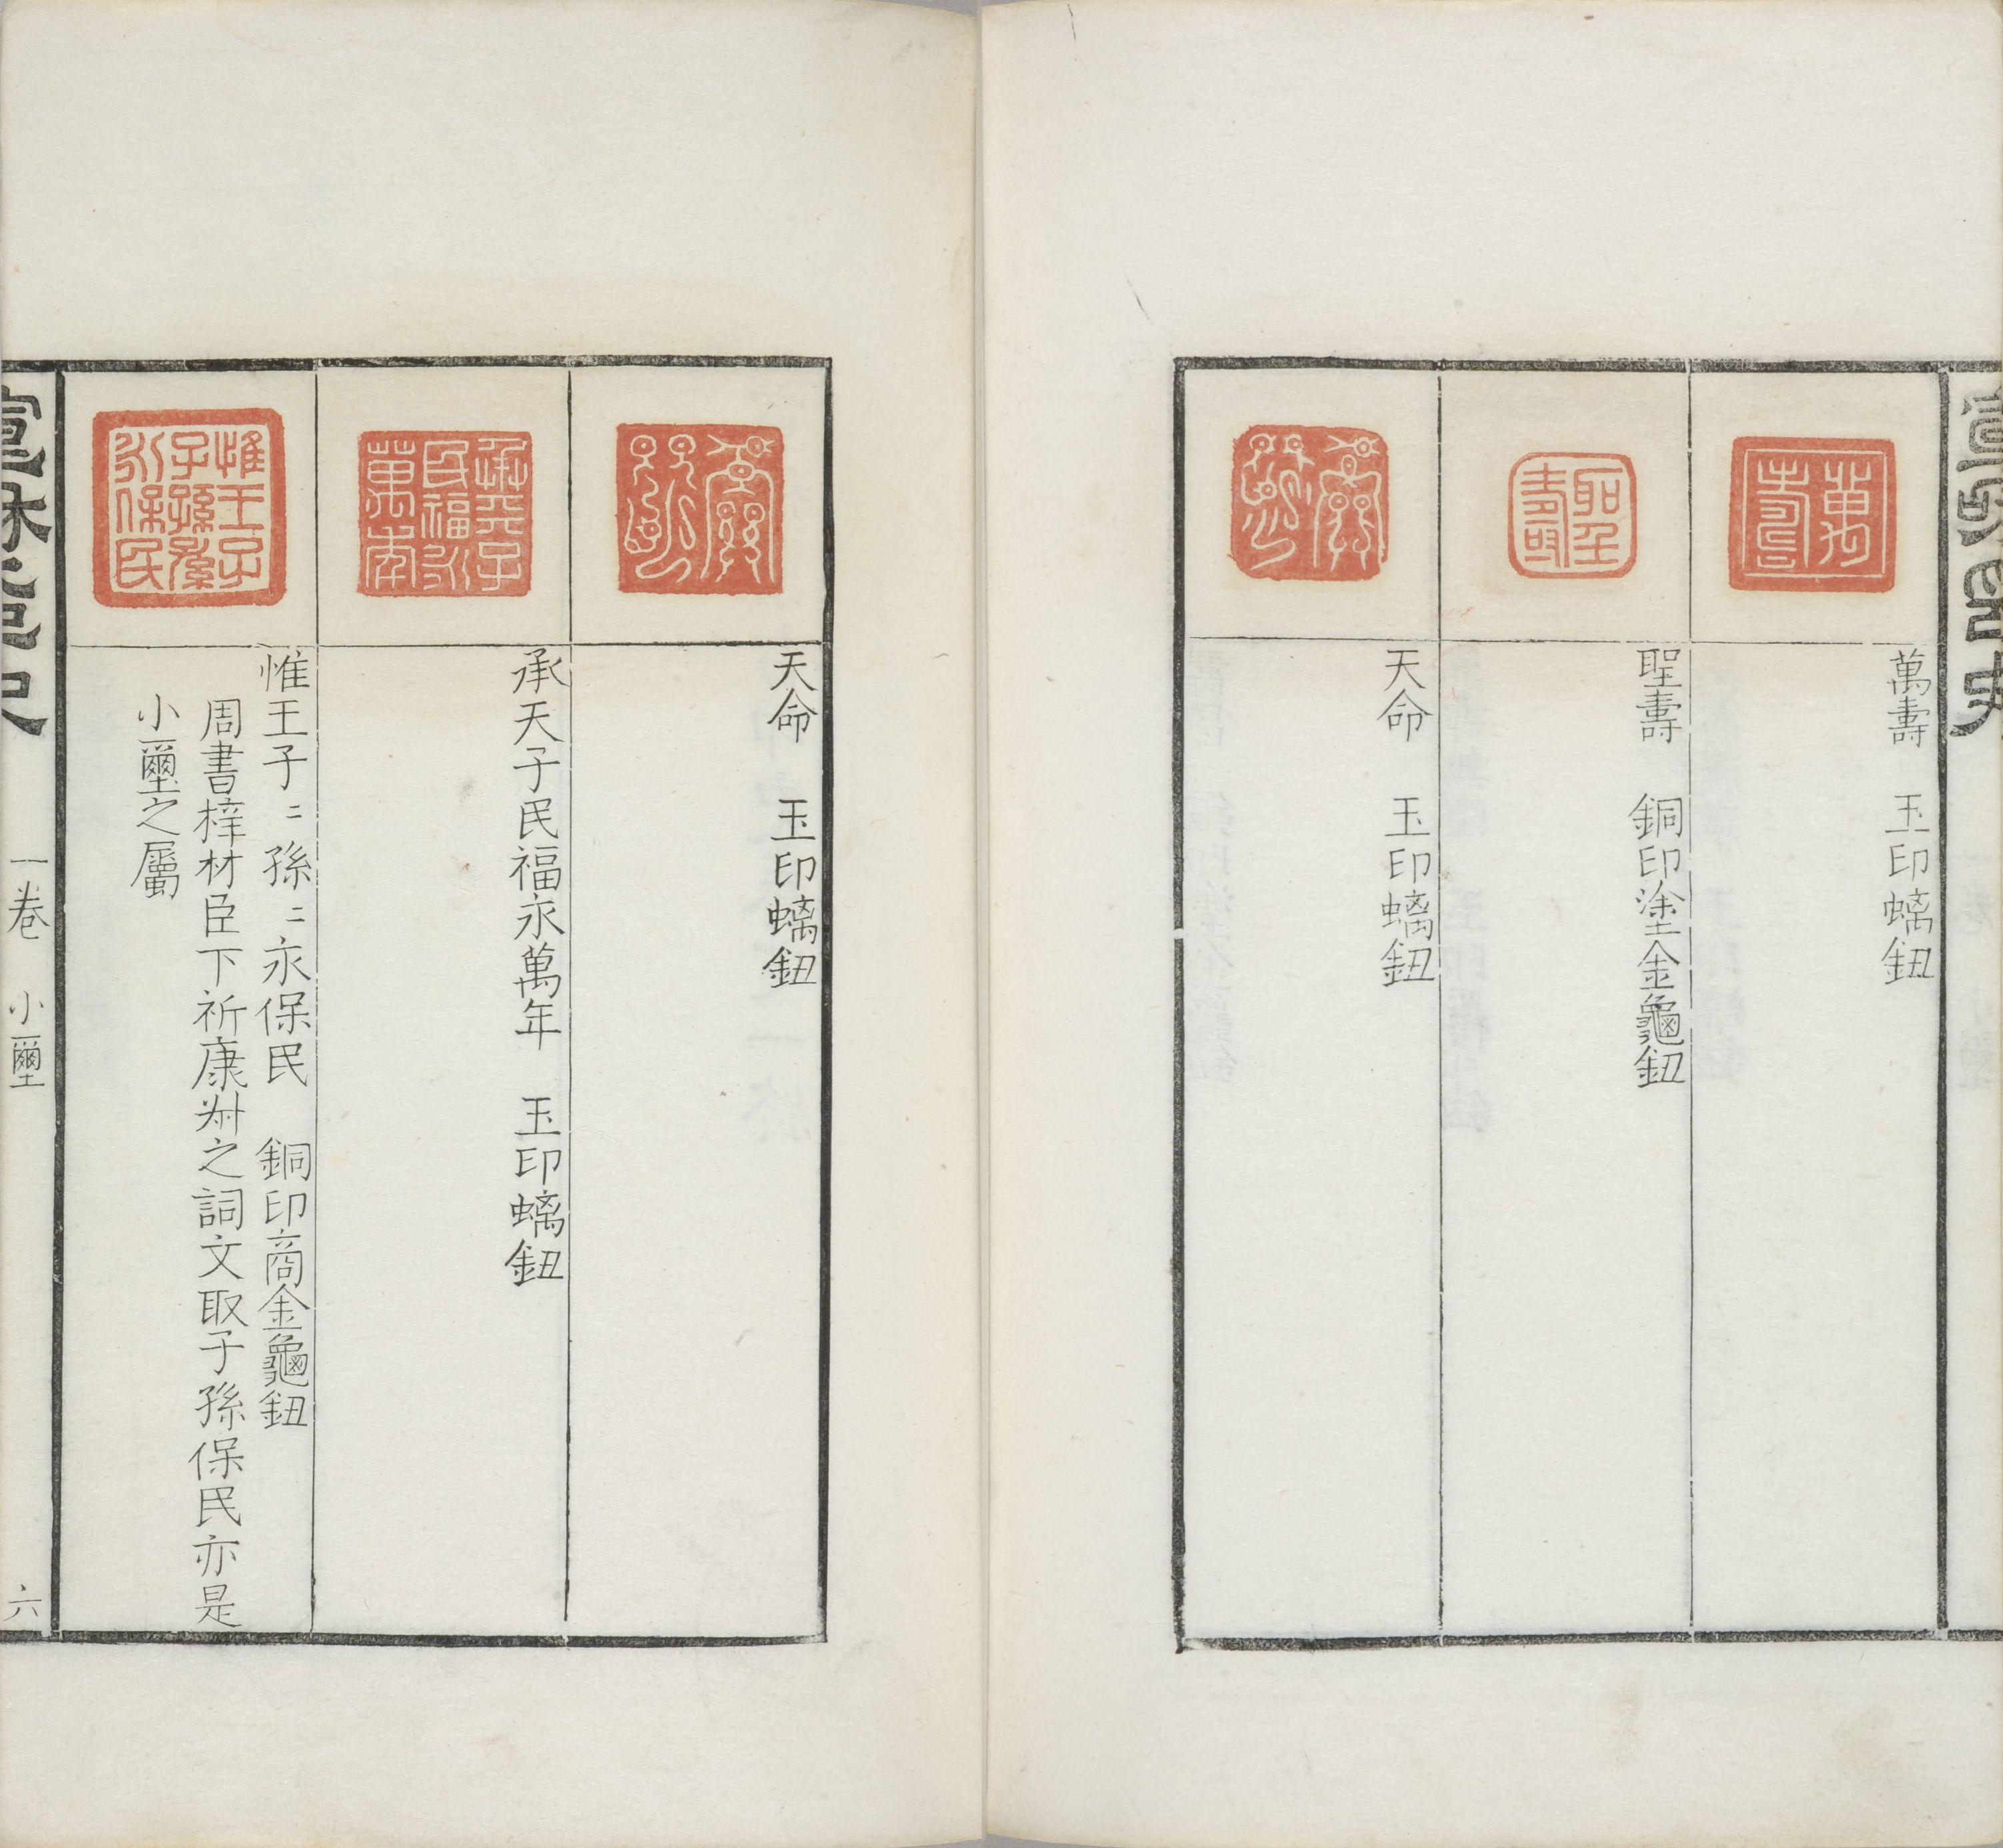 萬壽　玉印螭鈕
聖壽　銅印塗金龜鈕
天命　玉印螭鈕
天命　玉印螭鈕
承天子民福永萬年　玉印螭鈕
惟王子〻孫〻永保民　銅印商金龜鈕
周書梓材臣下祈康叔之詞文取子孫保民亦是
小璽之屬
一卷　小璽
六